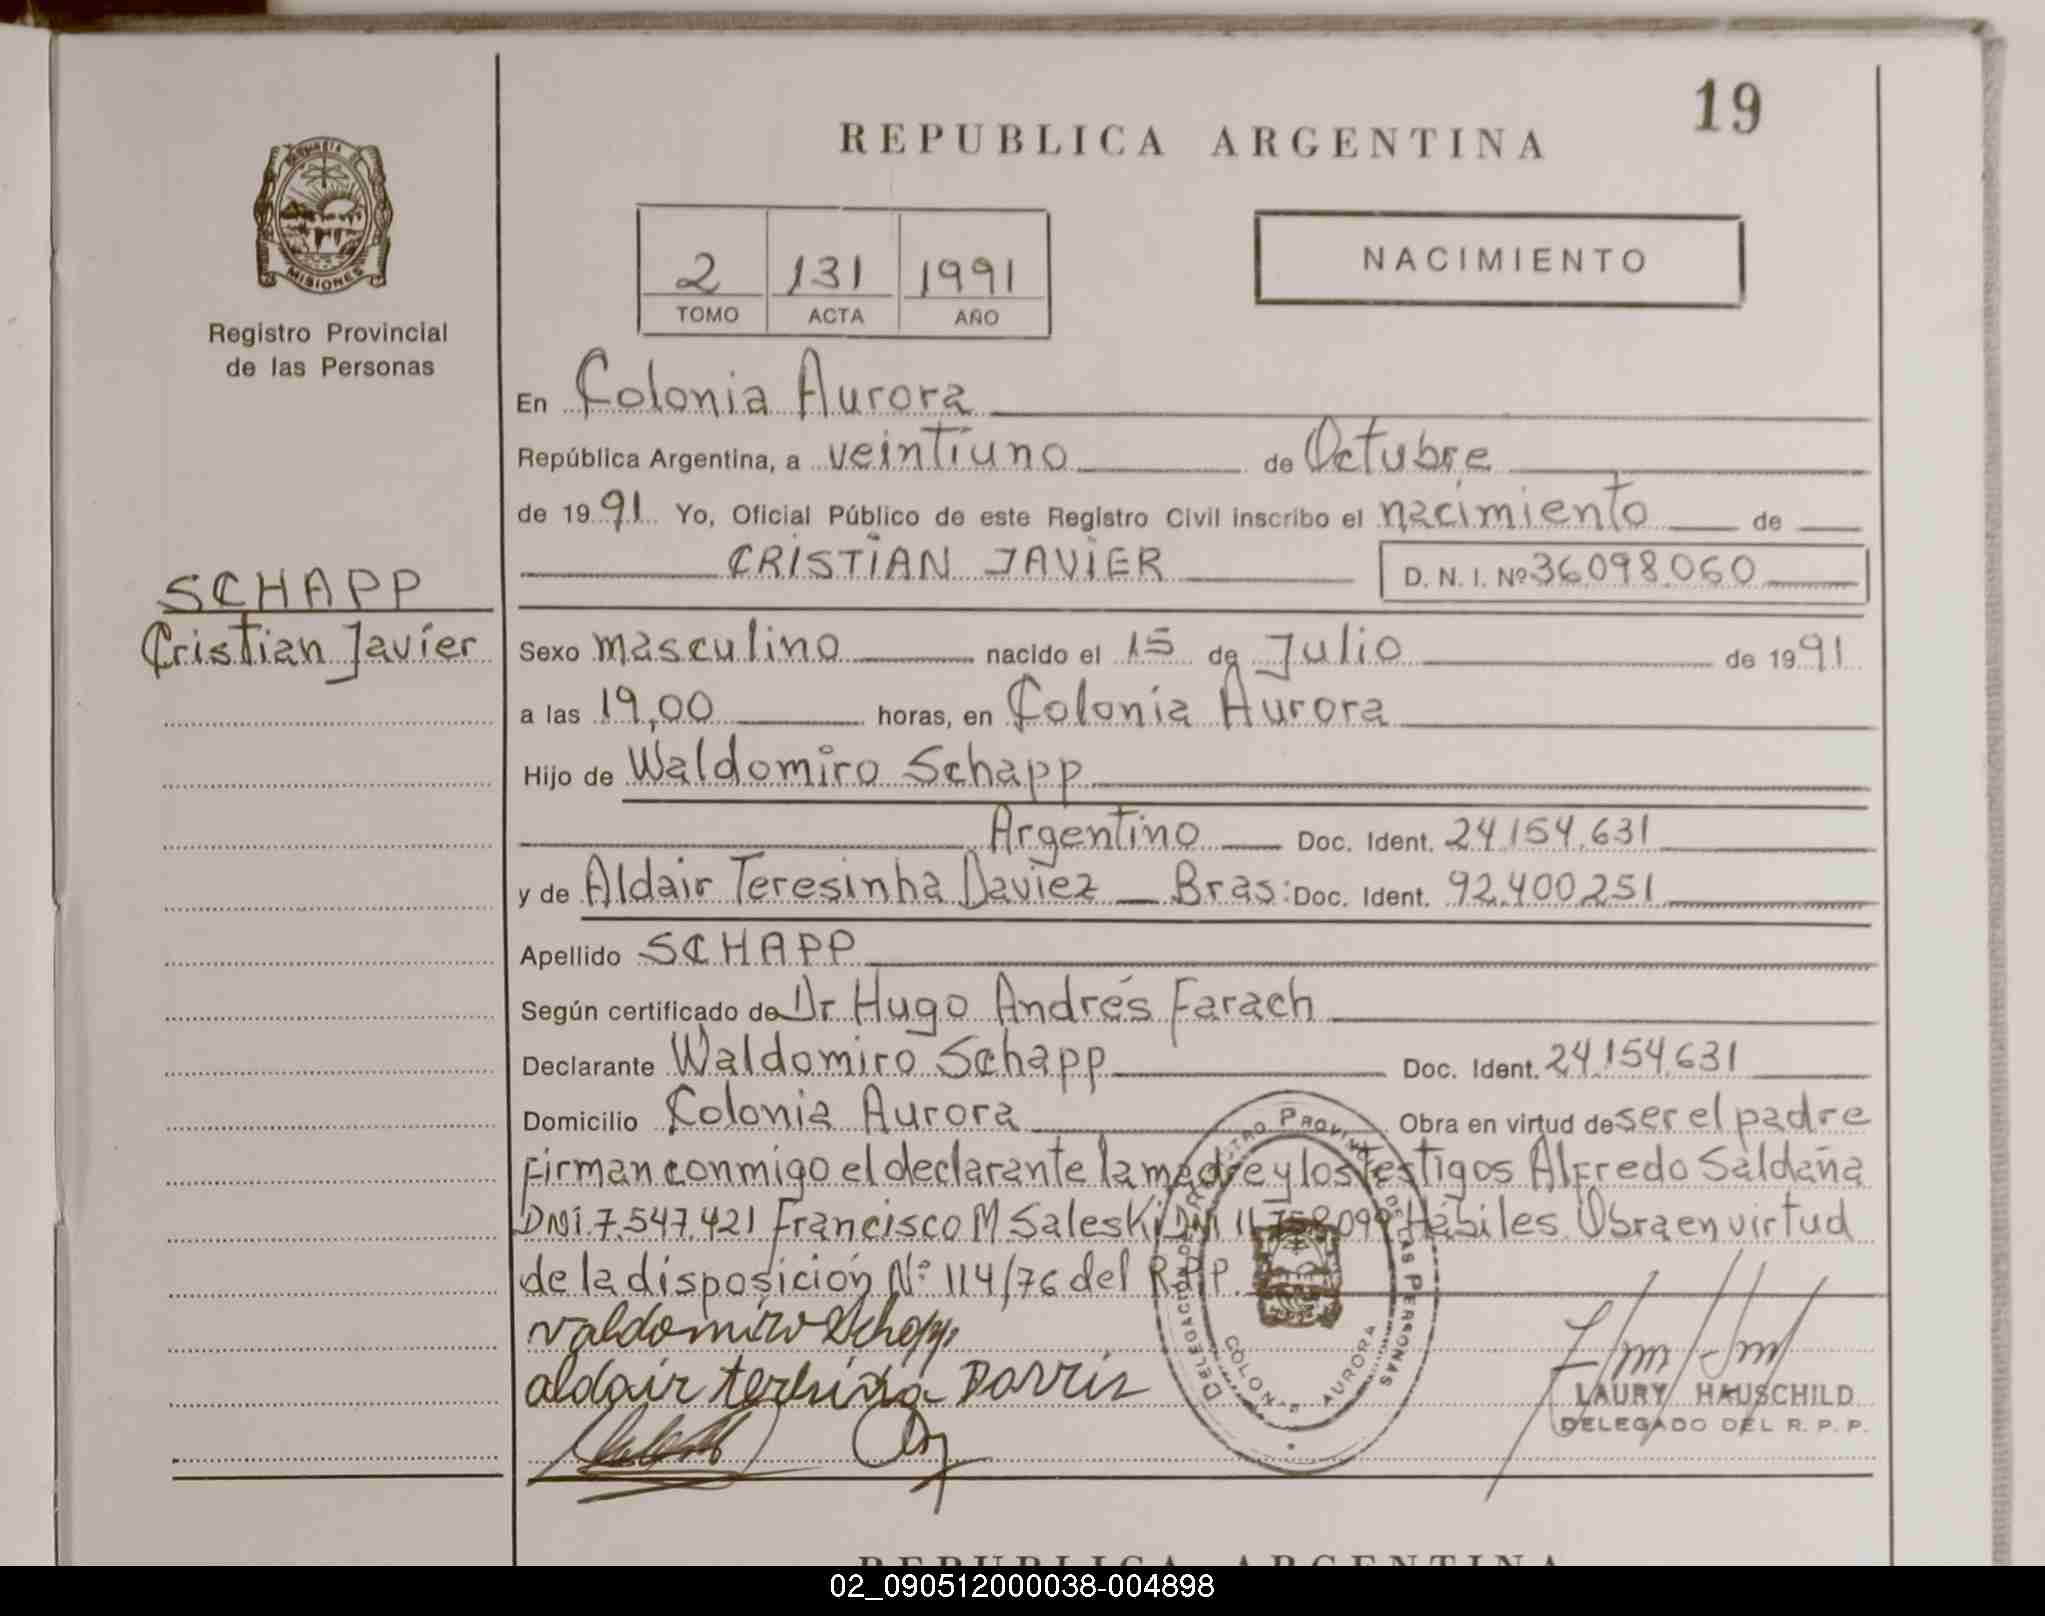 19
REPUBLICA ARGENTINA
PROVINCIA DE
MISIONES
Registro Provincial
de las Personas
2 131 1991
TOMO ACTA AÑO
NACIMIENTO
En Colonia Aurora
República Argentina, a veintiuno de Octubre
de 1991 Yo, Oficial Público de este Registro Civil inscribo el nacimiento de
CRISTIAN JAVIER D. N. I. Nº 36098060
SCHAPP
Cristian Javier
Sexo masculino nacido el 15 de Julio de 1991
a las 19,00 horas, en Colonia Aurora
Hijo de Waldomiro Schapp
Argentino Doc. Ident. 24.154.631
y de Aldair Teresinha Daviez Bras: Doc. Ident. 92.400251
Apellido SCHAPP
Según certificado de Dr Hugo Andrés Farach
Declarante Waldomiro Schapp Doc. Ident. 24.154.631
Domicilio Colonia Aurora Obra en virtud de ser el padre
Firman conmigo el declarante la madre y los testigos Alfredo Saldaña
DNi.7.547.421 Francisco M Saleski DNi 11.758.099 Hábiles. Obra en virtud
de la disposición Nº 114/76 del R.P.P.
valdomiro Schapp
aldair
DELEGACION DE REGISTRO PROVINCIAL DE LAS PERSONAS
COLONIA AURORA
LAURY HAUSCHILD
DELEGADO DEL R. P. P.
REPUBLICA ARGENTINA
02_090512000038-004898